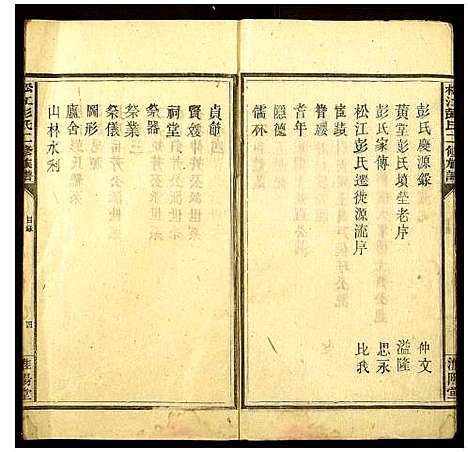 彭氏慶源錄
仲文
黃堂彭氏墳塋老序
溢隆
彭氏家傳
思永
松江彭氏遷徙源流序
比我
宦蹟
耆年
隱德
儒林
貞節
賢媛
祠堂
祭器
祭業
祭儀
圖形
廬舍
山林水利
松江彭氏二修族譜
目錄
四
淮陽堂